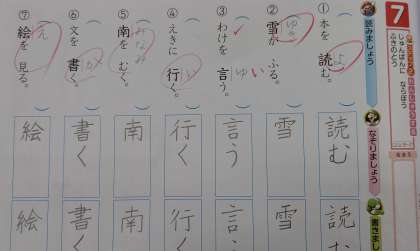 7
じゅんばんに ならおう
ふきのとう
読みましょう
なぞりましょう
書きまし
①本を 読む。
よ
②雪が ふる。
ゆき
③わけを 言う。
ゆい
④えきに 行く。
い
⑤南を むく。
みなみ
⑥文を 書く。
か
⑦絵を 見る。
え
読む
雪
言う
行く
南
書く
絵
読む
雪
言う
行く
南
書く
絵